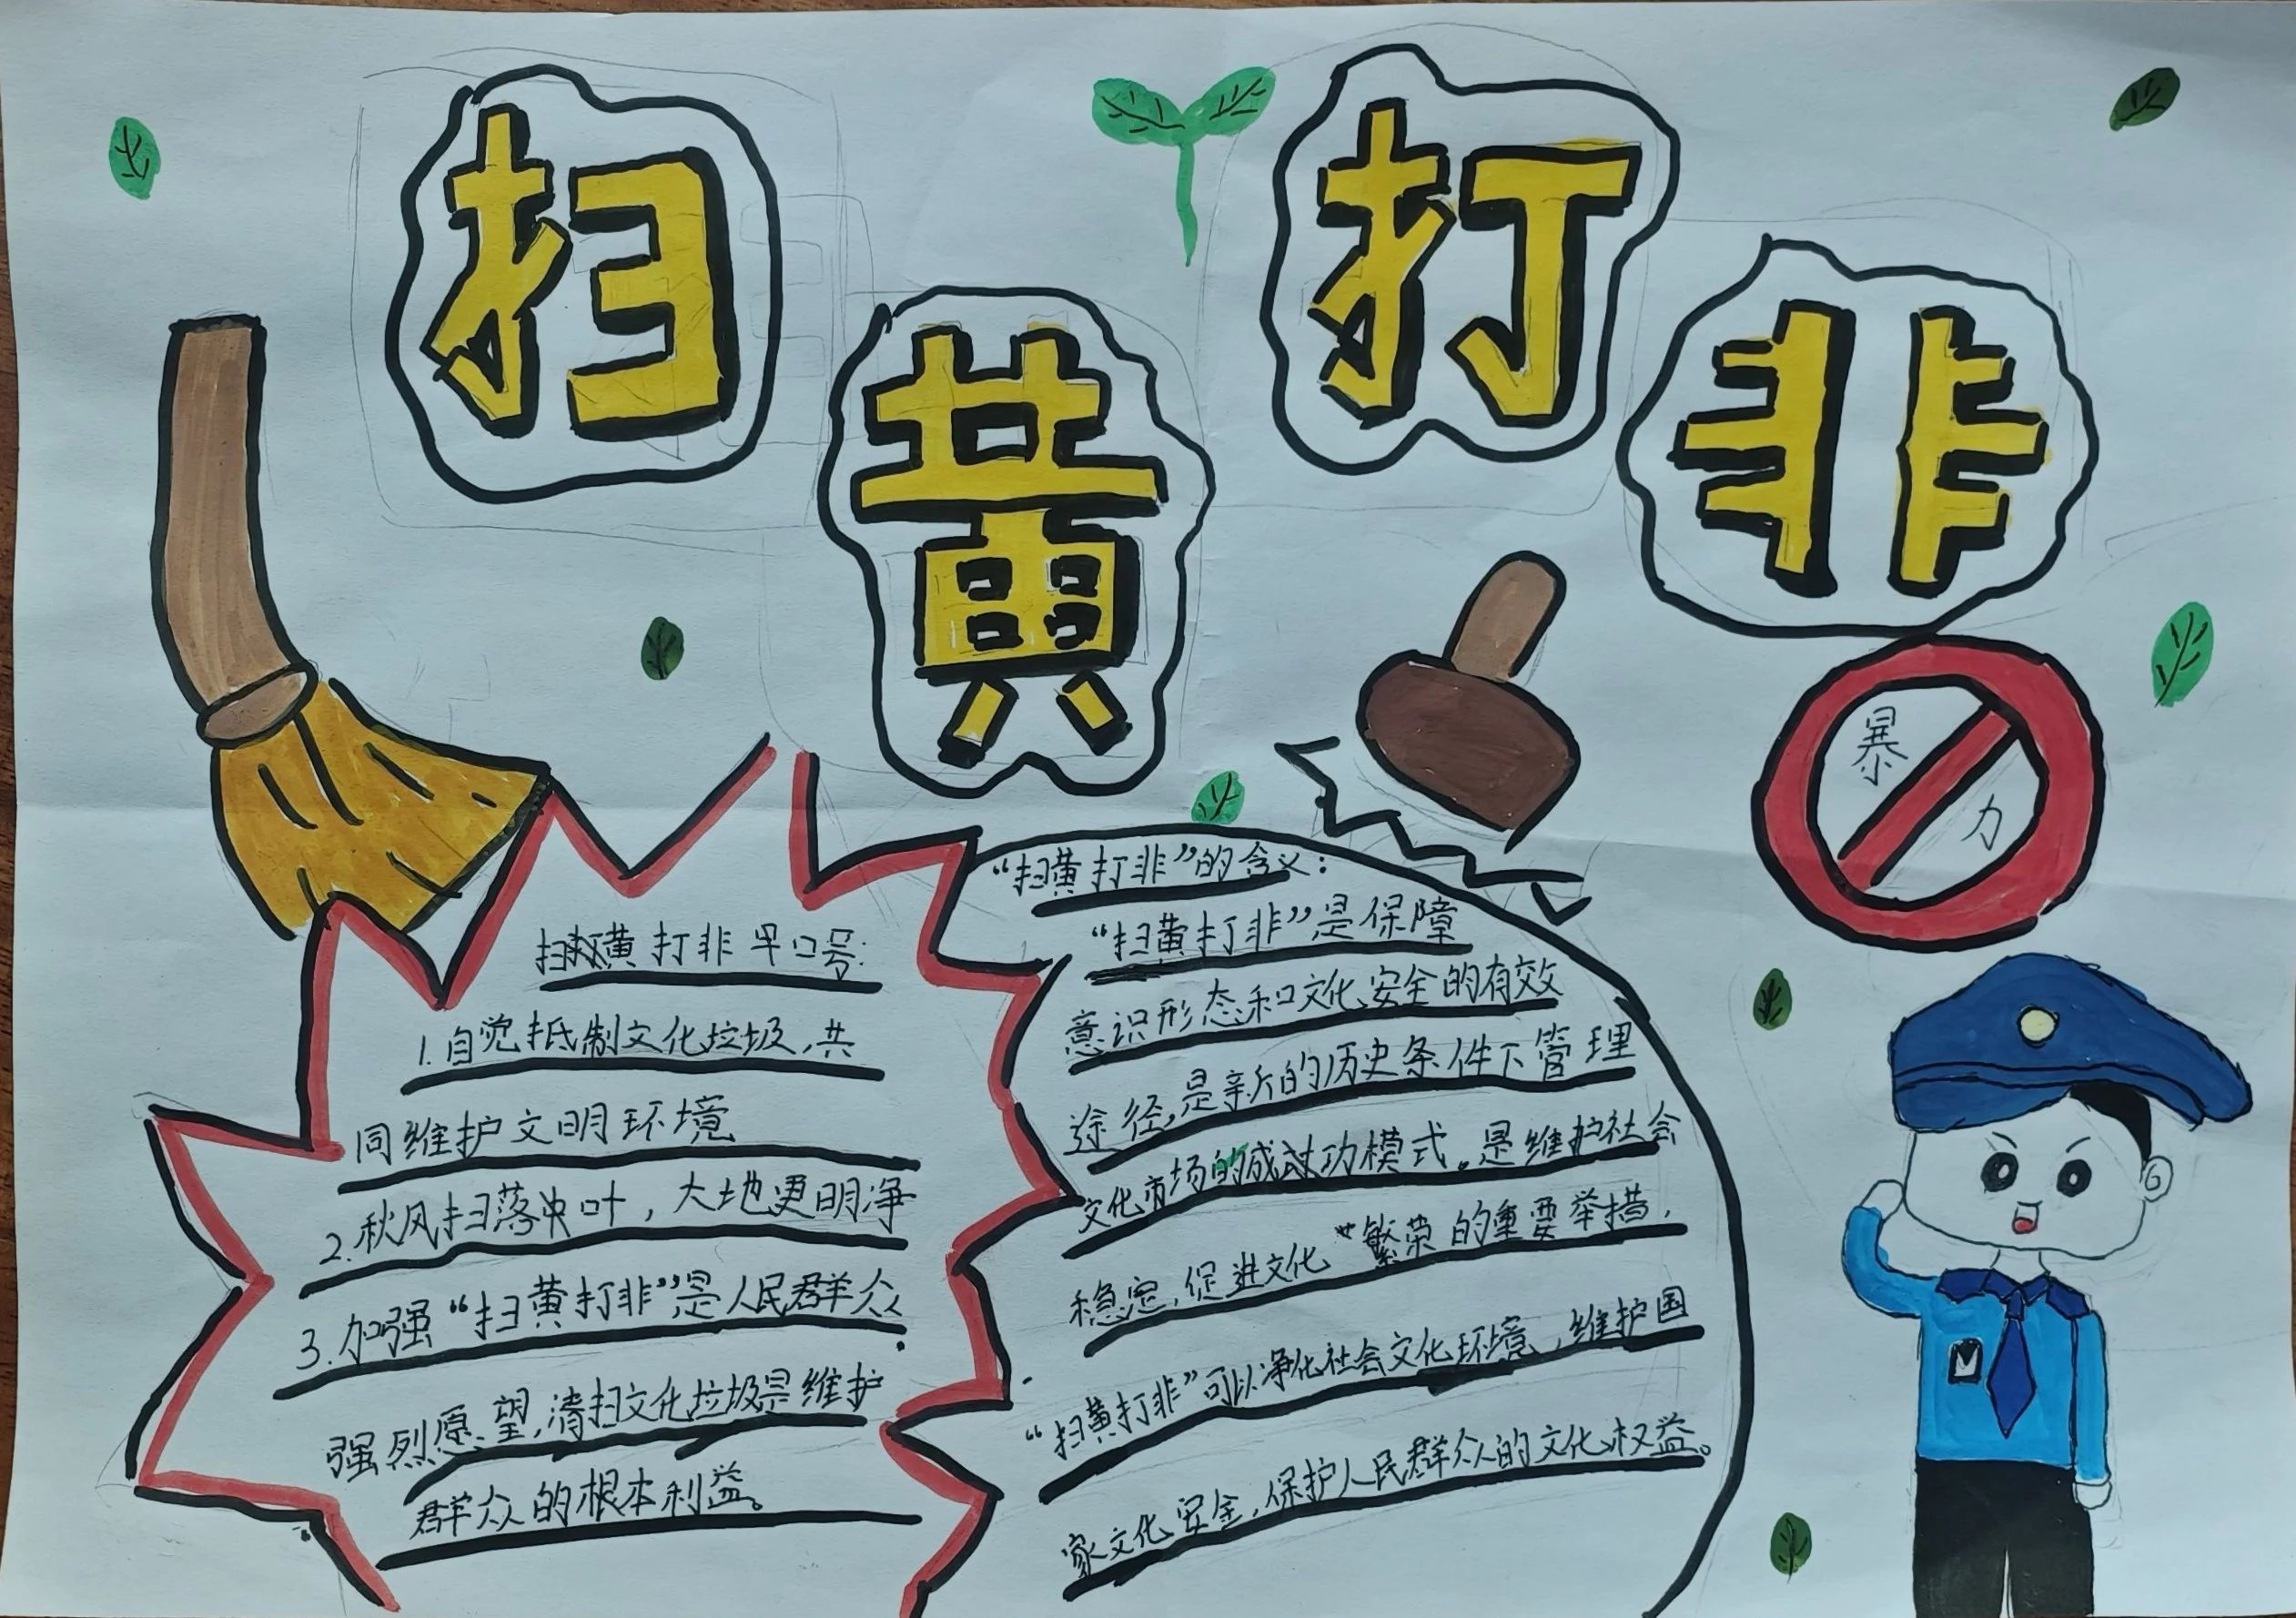 扫黄打非
暴力
扫黄打非早口号:
1.自觉抵制文化垃圾,共
同维护文明环境
2.秋风扫落叶,大地更明净
3.加强“扫黄打非”是人民群众
强烈愿望,清扫文化垃圾是维护
群众的根本利益。
“扫黄打非”的含义:
“扫黄打非”是保障
意识形态和文化安全的有效
途径,是新的历史条件下管理
文化市场的成功模式。是维护社会
稳定,促进文化繁荣的重要举措,
“扫黄打非”可以净化社会文化环境,维护国
家文化安全,保护人民群众的文化权益。